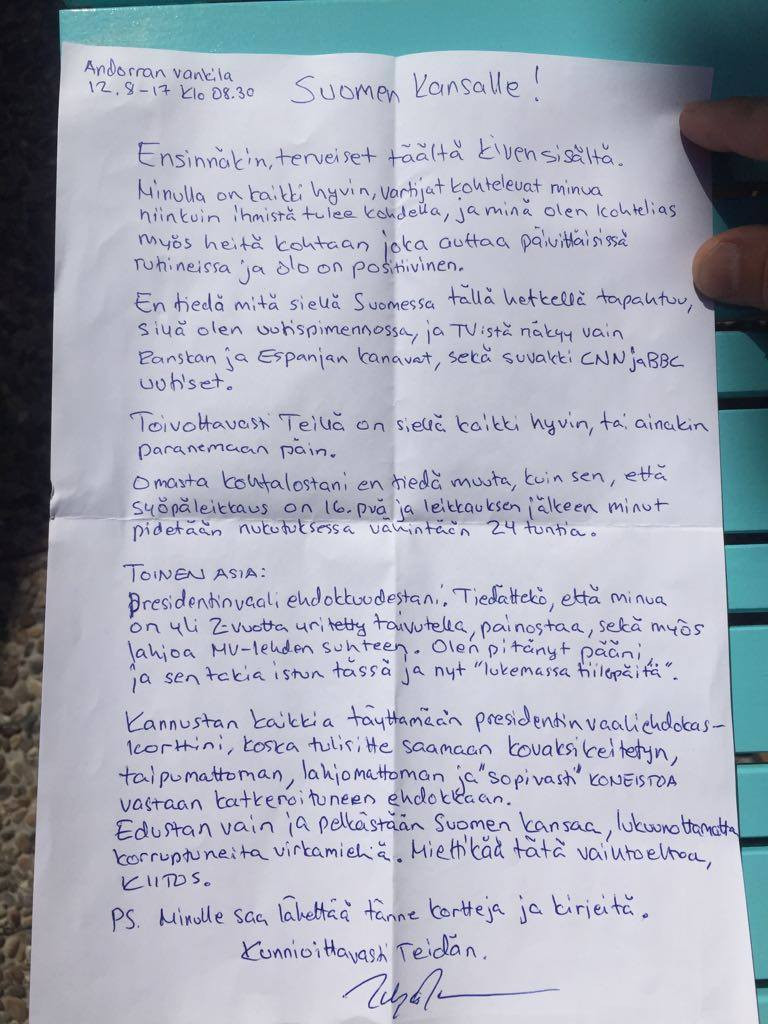 Andorran vankila
12.8-17 Klo 08.30
Suomen Kansalle!
Ensinnäkin, terveiset täältä kiven sisältä.
Minulla on kaikki hyvin, vartijat kohtelevat minua
niinkuin ihmistä tulee kohdella, ja minä olen kohtelias
myös heitä kohtaan joka auttaa päivittäisissä
rutiineissa ja olo on positiivinen.
En tiedä mitä siellä Suomessa tällä hetkellä tapahtuu,
sillä olen uutispimennossa, ja TV:stä näkyy vain
Ranskan ja Espanjan kanavat, sekä suvakki CNN ja BBC
uutiset.
Toivottavasti Teillä on siellä kaikki hyvin, tai ainakin
paranemaan päin.
Omasta kohtalostani en tiedä muuta, kuin sen, että
syöpäleikkaus on 16. pvä ja leikkauksen jälkeen minut
pidetään nukutuksessa vähintään 24 tuntia.
TOINEN ASIA:
Presidentinvaali ehdokkuudestani. Tiedättekö, että minua
on yli 2-vuotta yritetty taivutella, painostaa, sekä myös
lahjoa MV-lehden suhteen. Olen pitänyt pääni,
ja sen takia istun tässä ja nyt "lukemassa tiilenpäitä".
Kannustan kaikkia täyttämään presidentinvaaliehdokas-
korttini, koska tulisitte saamaan kovaksikeitetyn,
taipumattoman, lahjomattoman ja "sopivasti" KONEISTOA
vastaan katkeroituneen ehdokkaan.
Edustan vain ja pelkästään Suomen kansaa, lukuunottamatta
korruptuneita virkamiehiä. Miettikää tätä vaihtoehtoa,
KIITOS.
PS. Minulle saa lähettää tänne kortteja ja kirjeitä.
Kunnioittavasti Teidän.